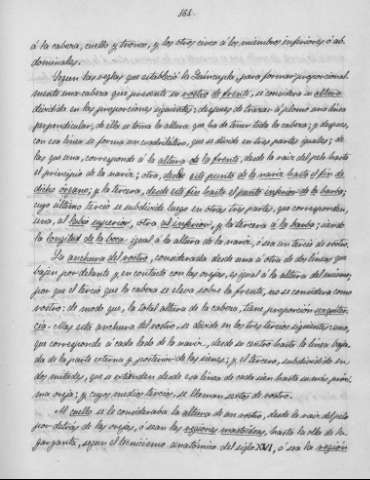 161.
á la cabeza, cuello y tronco, y los otros cinco á los miembros inferiores ó abdominales.
Según las reglas que estableció la Quincupla, para formar proporcionalmente una cabeza que presente su rostro de frente, se considera su altura dividida en las proporciones siguientes: después de trazar á plomo una línea perpendicular, de ella se toma la altura que ha de tener toda la cabeza; y después, con esa línea se forma un cuadrilátero, que se divide en tres partes iguales; de las que una, corresponde á la altura de la frente, desde la raíz del pelo hasta el principio de la nariz; otra, desde este punto de la nariz hasta el fin de dicho órgano; y la tercera, desde este fin hasta el punto inferior de la barba; cuyo último tercio se subdivide luego en otras tres partes, que corresponden, una, al labio superior, otra al inferior, y la tercera á la barba; siendo la longitud de la boca igual á la altura de la nariz, ó sea un tercio de rostro.
La anchura del rostro, considerada desde una á otra de dos líneas que bajan por delante y en contacto con las orejas, es igual á la altura del mismo; por que el tercio que la cabeza se eleva sobre la frente, no se considera como rostro: de modo que, la total altura de la cabeza, tiene proporción
á cada lado de la nariz, desde su centro hasta la línea bajada de la parte externa y posterior de las sienes; y el tercero, subdividido en dos mitades, que se extienden desde esa línea de cada sien hasta su más próxima oreja; y cuyos medios tercios, se llaman sextos de rostro.
Al cuello se le consideraba la altura de un rostro, desde la raíz del pelo por detrás de las orejas, ó sean las regiones mastoideas, hasta la olla de la garganta, según el tecnicismo anatómico del siglo XVI, ó sea la región